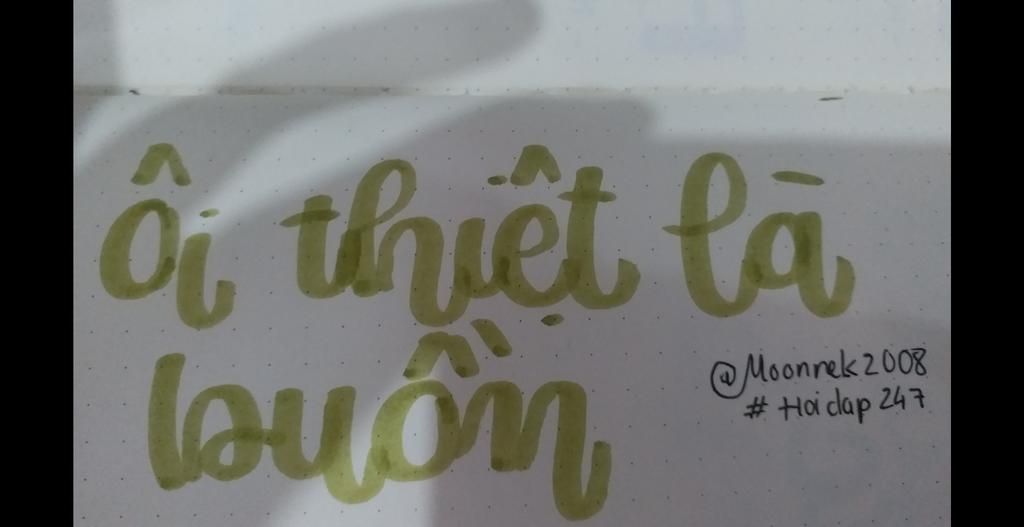 Ôi thiệt là
buồn
@Moonnek2008
# Hoidap 247